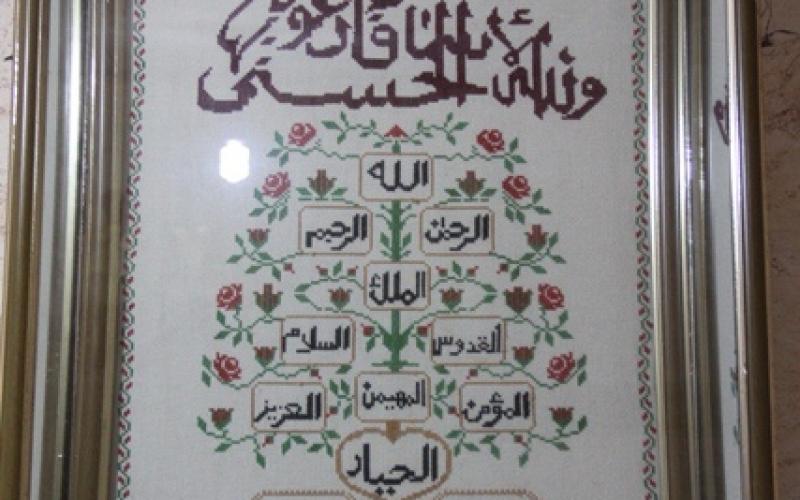 ولله الأسماء الحسنى فادعوه بها
الله
الرحمن الرحيم
الملك
القدوس السلام
المؤمن المهيمن العزيز
الجبار